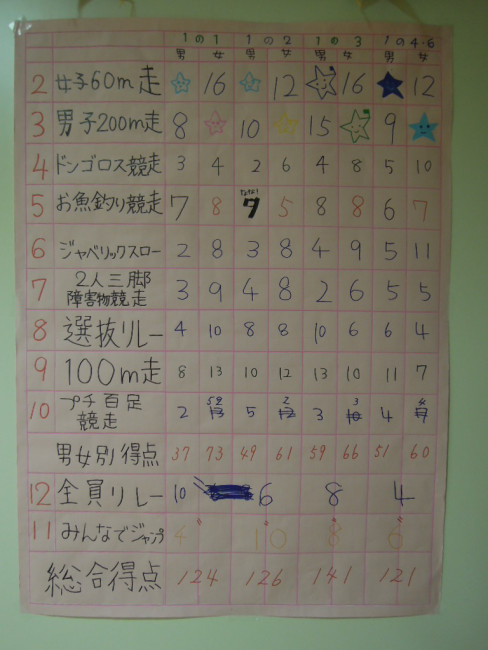 1の1 1の2 1の3 1の4・6
男 女 男 女 男 女 男 女
2 女子60m走 16 12 16 12
3 男子200m走 8 10 15 9
4 ドンゴロス競走 3 4 2 6 4 8 5 10
5 お魚釣り競走 7 8 7 5 8 8 6 7
6 ジャベリックスロー 2 8 3 8 4 9 5 11
7 2人三脚
障害物競走 3 9 4 8 2 6 5 5
8 選抜リレー 4 10 8 8 10 6 6 4
9 100m走 8 13 10 12 13 10 11 7
10 プチ百足
競走 2 5 3 4
男女別得点 37 73 49 61 59 66 51 60
12 全員リレー 10 6 8 4
11 みんなでジャンプ 4 10 8 6
総合得点 124 126 141 121